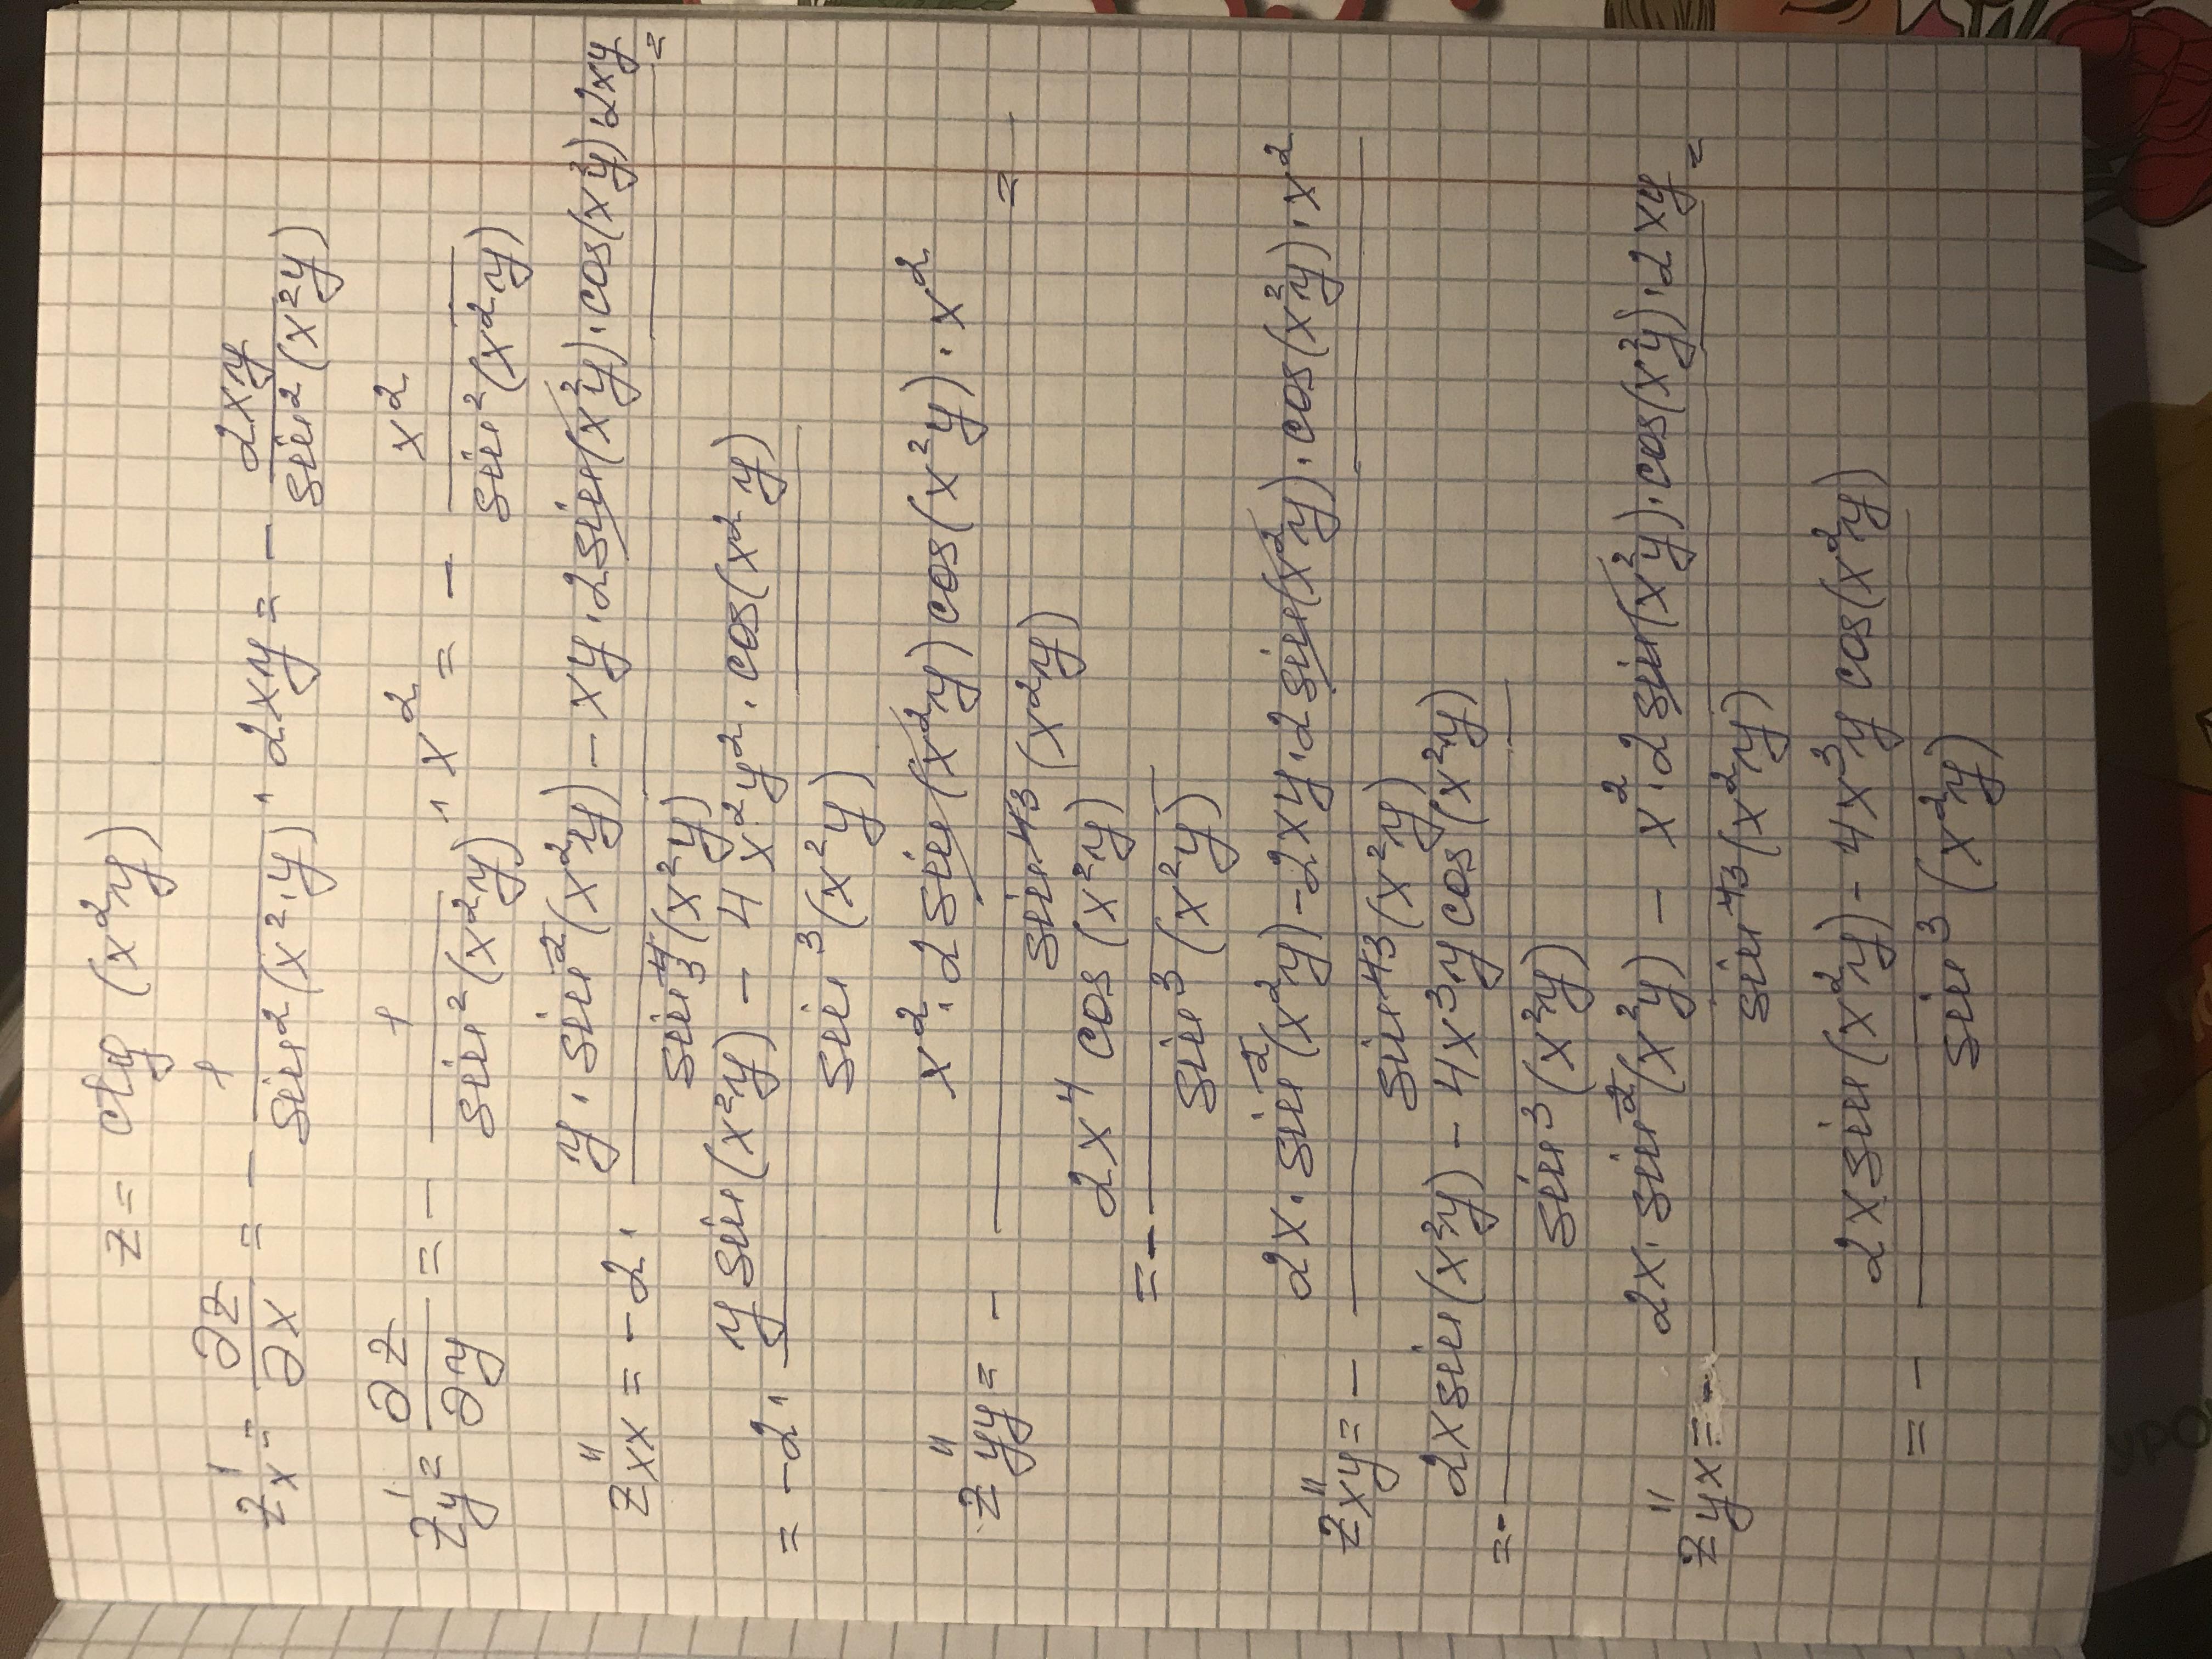 z = ctg (x²y)
z'x = ∂z/∂x = - 1/sin²(x²·y) · 2xy = - 2xy/sin²(x²y)
z'y = ∂z/∂y = - 1/sin²(x²y) · x² = - x²/sin²(x²y)
z''xx = -2 · (y · sin²(x²y) - xy · 2sin(x²y) · cos(x²y) 2xy)/sin⁴³(x²y) =
= -2 · (y sin(x²y) - 4x²y² · cos(x²y))/sin³(x²y)
z''yy = - (x² · 2sin(x²y) cos(x²y) · x²)/sin⁴³(x²y) =
= - 2x⁴ cos(x²y)/sin³(x²y)
z''xy = - (2x · sin²(x²y) - 2xy · 2sin(x²y) · cos(x²y) · x²)/sin⁴³(x²y)
= - (2x sin(x²y) - 4x³y cos(x²y))/sin³(x²y)
z''yx = - (2x · sin²(x²y) - x² · 2sin(x²y) · cos(x²y) · 2xy)/sin⁴³(x²y) =
= - (2x sin(x²y) - 4x³y cos(x²y))/sin³(x²y)